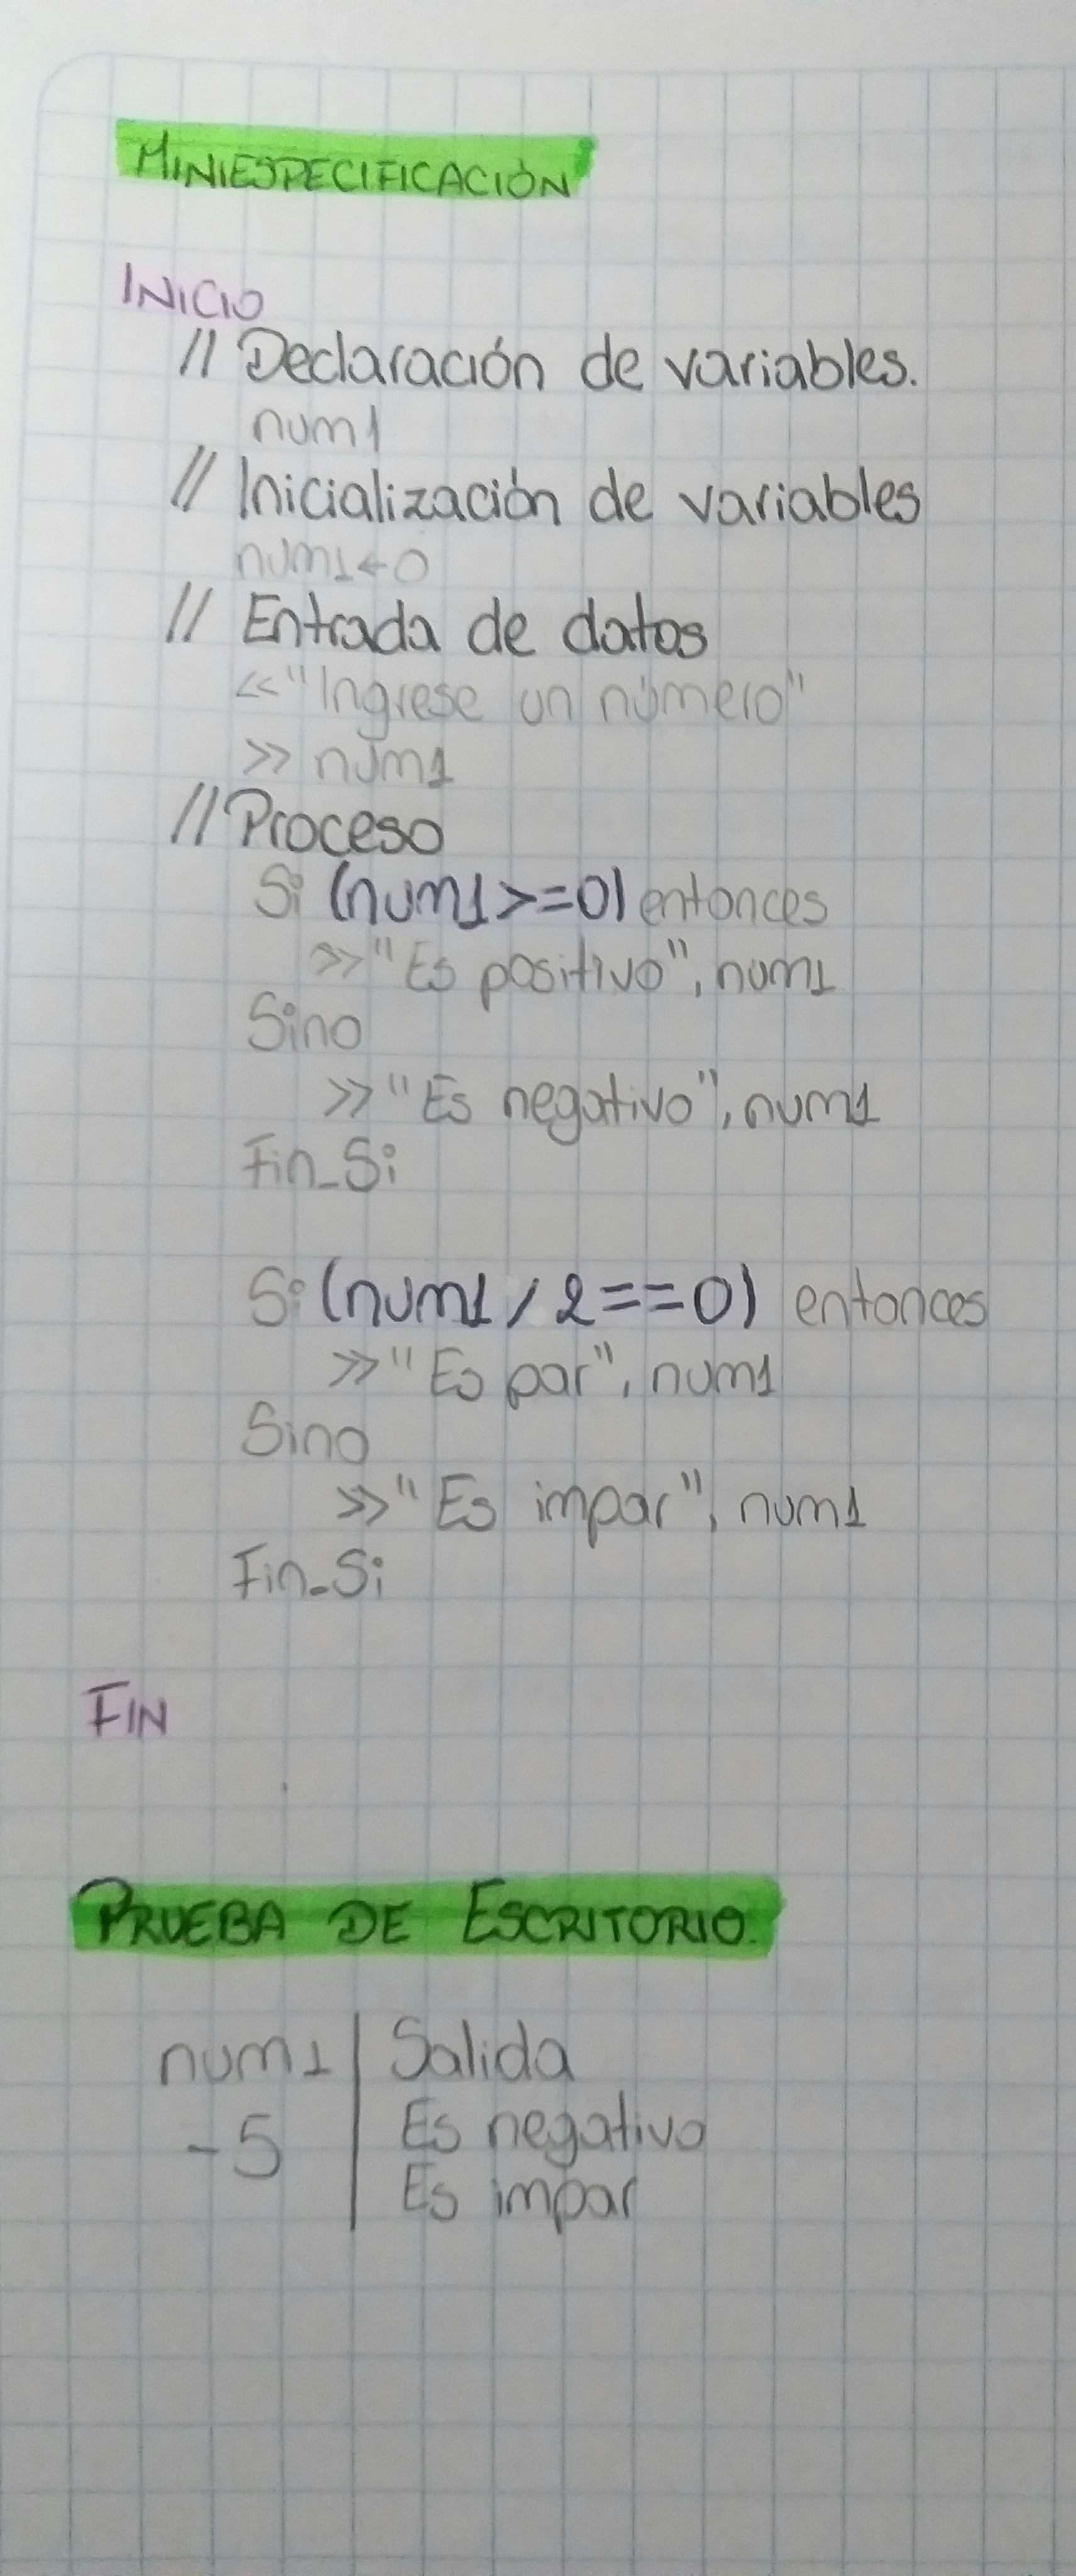 MINIESPECIFICACIÓN
INICIO
// Declaración de variables.
num1
// Inicialización de variables
num1←0
// Entrada de datos
<<"Ingrese un número"
>> num1
//Proceso
Si (num1>=0) entonces
>>"Es positivo", num1
Sino
>>"Es negativo", num1
Fin_Si
Si (num1 / 2==0) entonces
>>"Es par", num1
Sino
>>"Es impar", num1
Fin_Si
FIN
PRUEBA DE ESCRITORIO.
num1 | Salida
-5 | Es negativo
Es impar